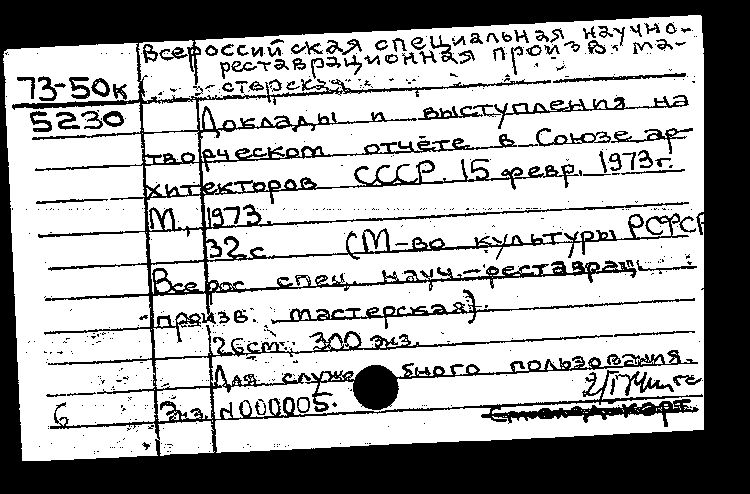 Всероссийская специальная научно-
реставрационная произв. ма-
73-50к
стерская
5230
Доклады и выступления на
творческом отчёте в Союзе ар-
хитекторов СССР. 15 февр. 1973г.
М., 1973.
32с. (М-во культуры РСФСР
Всерос. спец. науч.-реставрац.
произв. мастерская).
26см. 300 экз.
Для служебного пользования.
6
Экз. N000005.